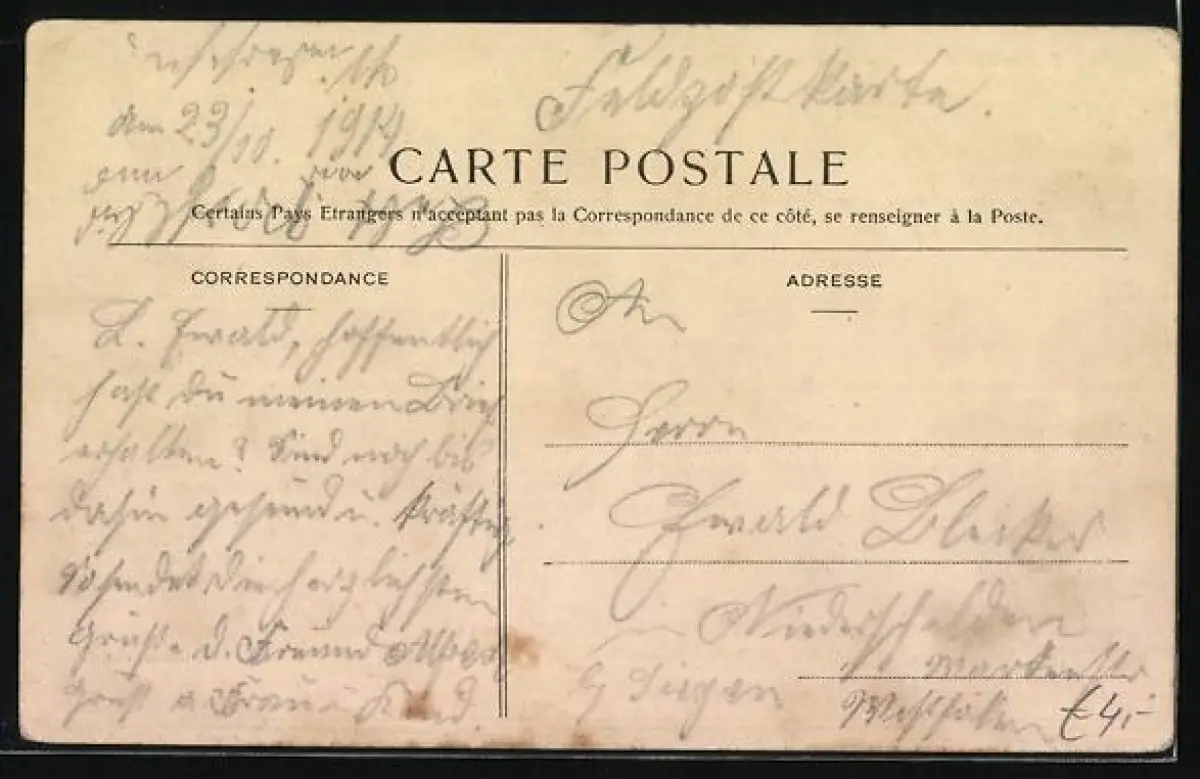 Feldpostkarte.
am 23/10. 1914
CARTE POSTALE
Certains Pays Etrangers n'acceptant pas la Correspondance de ce côté, se renseigner à la Poste.
CORRESPONDANCE
L. Ewald, hoffentlich
hast du meinen Brief
erhalten? Sind noch bis
dahin gesund u. kräftig
So sendet die herzlichsten
Grüße d. Freund
Gruß a Frau u Kind.
ADRESSE
An
Herrn
Ewald Bleiker
in Niederschelden
b/ Siegen
Westfalen
€4,-